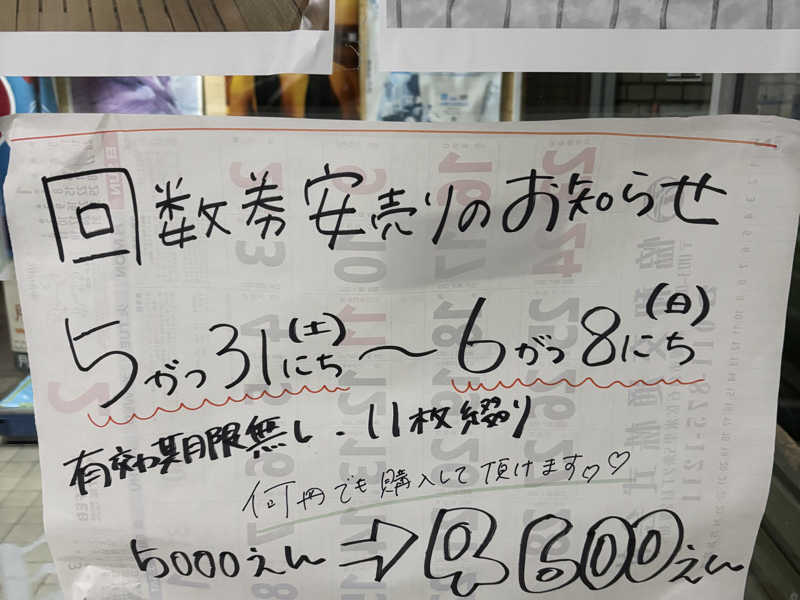 回数券安売りのお知らせ
5がつ31にち(土)〜6がつ8にち(日)
有効期限無し・11枚綴り
何冊でも購入して頂けます♡♡
5000えん⇒4600えん